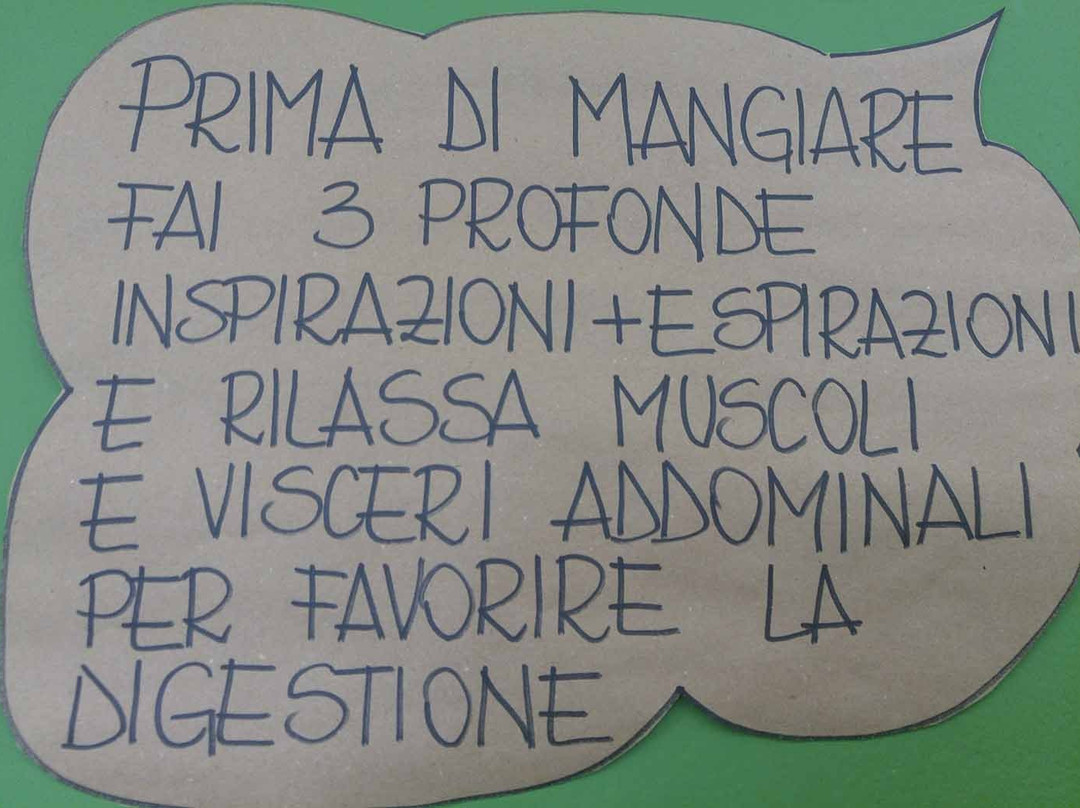 PRIMA DI MANGIARE
FAI 3 PROFONDE
INSPIRAZIONI + ESPIRAZIONI
E RILASSA MUSCOLI
E VISCERI ADDOMINALI
PER FAVORIRE LA
DIGESTIONE